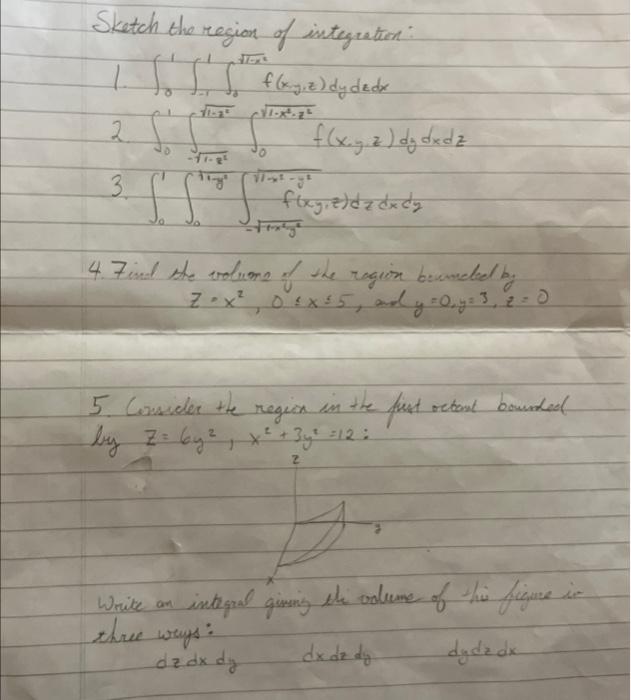 Sketch the region of integration:
1. ∫₀¹ ∫₋₁¹ ∫₀^√(1-x²) f(x,y,z) dy dz dx
2. ∫₀¹ ∫_{-√(1-z²)}^{√(1-z²)} ∫₀^{√(1-x²-z²)} f(x,y,z) dy dx dz
3. ∫₀¹ ∫₀^{√(1-y²)} ∫_{-√(1-x²-y²)}^{√(1-x²-y²)} f(x,y,z) dz dx dy
4. Find the volume of the region bounded by
z = x², 0 ≤ x ≤ 5, and y = 0, y = 3, z = 0
5. Consider the region in the first octant bounded
by z = 6y², x² + 3y² = 12:
z
y
x
Write an integral giving the volume of this figure in
three ways:
dz dx dy dx dz dy dy dz dx